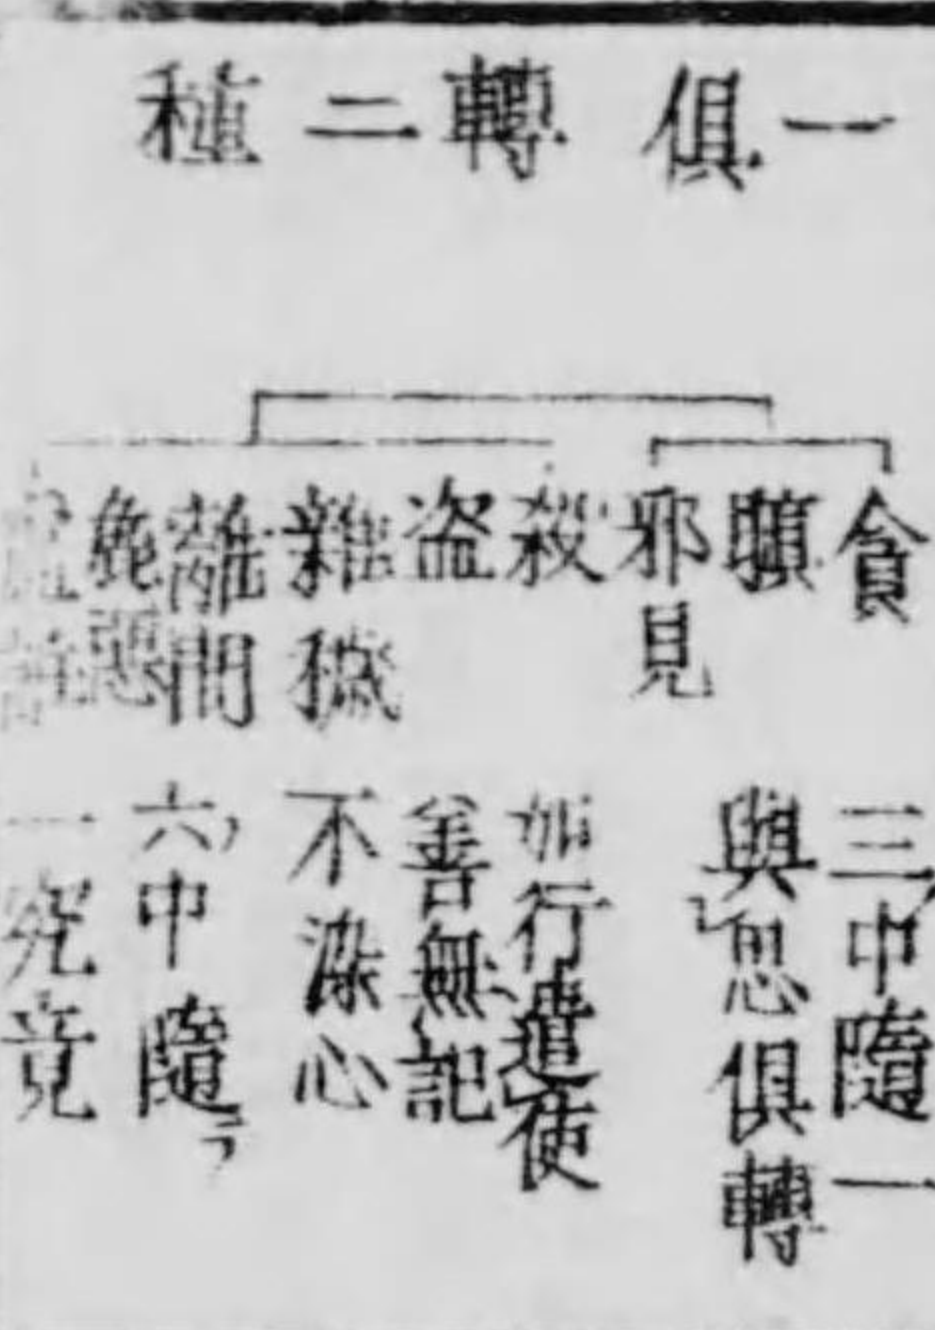 一俱轉二種
貪
瞋
邪見
殺
盗
雜穢
離間
麁惡
三中隨一
與思俱轉
加行遣使
善無記
不染心
六中隨
一究竟